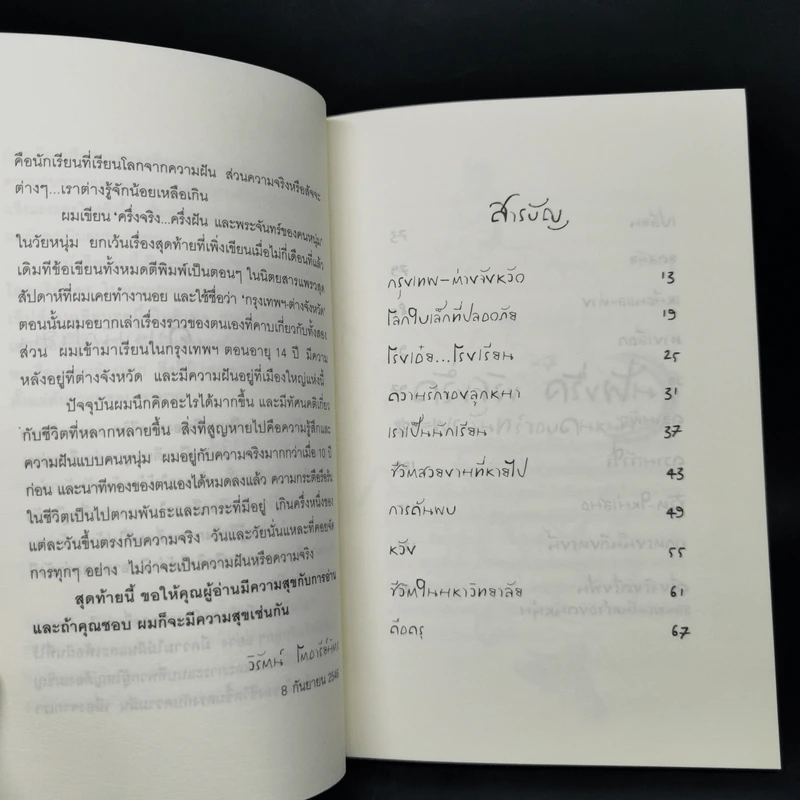 คือนักเรียนที่เรียนโลกจากความฝัน ส่วนความจริงหรือสัจจะ
ต่างๆ...เราต่างรู้จักน้อยเหลือเกิน
ผมเขียน 'ครึ่งจริง...ครึ่งฝัน และพระจันทร์ของคนหนุ่ม'
ในวัยหนุ่ม ยกเว้นเรื่องสุดท้ายที่เพิ่งเขียนเมื่อไม่กี่เดือนที่แล้ว
เดิมทีข้อเขียนทั้งหมดตีพิมพ์เป็นตอนๆ ในนิตยสารแพรวสุด
สัปดาห์ที่ผมเคยทำงานอยู่ และใช้ชื่อว่า 'กรุงเทพฯ-ต่างจังหวัด'
ตอนนั้นผมอยากเล่าเรื่องราวของตนเองที่คาบเกี่ยวกับทั้งสอง
ส่วน ผมเข้ามาเรียนในกรุงเทพฯ ตอนอายุ 14 ปี มีความ
หลังอยู่ที่ต่างจังหวัด และมีความฝันอยู่ที่เมืองใหญ่แห่งนี้
ปัจจุบันผมนึกคิดอะไรได้มากขึ้น และมีทัศนคติเกี่ยว
กับชีวิตที่หลากหลายขึ้น สิ่งที่สูญหายไปคือความรู้สึกและ
ความฝันแบบคนหนุ่ม ผมอยู่กับความจริงมากกว่าเมื่อ 10 ปี
ก่อน และนาทีทองของตนเองได้หมดลงแล้ว ความกระตือรือร้น
ในชีวิตเป็นไปตามพันธะและภาระที่มีอยู่ เกินครึ่งหนึ่งของ
แต่ละวันขึ้นตรงกับความจริง วันและวัยนั่นแหละที่คอยจัด
การทุกๆ อย่าง ไม่ว่าจะเป็นความฝันหรือความจริง
สุดท้ายนี้ ขอให้คุณผู้อ่านมีความสุขกับการอ่าน
และถ้าคุณชอบ ผมก็จะมีความสุขเช่นกัน
วิรัตน์
8 กันยายน
สารบัญ
กรุงเทพ-ต่างจังหวัด 13
โลกใบเล็กที่ปลอดภัย 19
โรงเอ๋ย...โรงเรียน 25
ความรักของลูกหมา 31
เราเป็นนักเรียน 37
ชีวิตสวยงามที่หายไป 43
การค้นพบ 49
หวัง 55
ชีวิตในมหาวิทยาลัย 61
คือครู 67